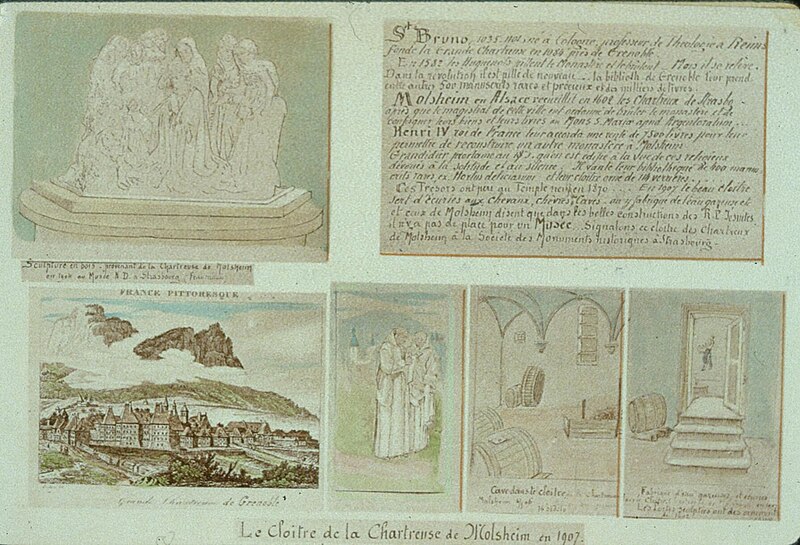 St Bruno, 1035 né à Cologne, professeur de Théologie à Reims
fonde la Grande Chartreux en 1084 près de Grenoble.
En 1582 les Huguenots pillent le Monastère et le brûlent. Mais il se relève.
Dans la révolution il est pillé de nouveau. la biblioth de Grenoble leur prend
entre autres 500 manuscrits rares et précieux et des milliers de livres.
Molsheim en Alsace recueillit en 1602 les Chartreux de Strasbg
après que le magistrat de cette ville eut ordonné de brûler le monastère et de
confisquer leurs biens et leurs
Henri IV roi de France leur accorda une rente de 7500 livres pour leur
permettre de reconstruire un autre monastère à Molsheim
Grandidier proclame au qu'on est édifié à la vue de ces religieux
dévoués à la solitude et au silence. Il vante leur bibliothèque de manus
crits rares ex Hortus deliciarum et leur cloître orné de verrières.
Ces Trésors ont péri au Temple neuf en 1870. En 1907 le beau cloître
sert d'écuries aux chevaux, chèvres, Caves. on y fabrique de l'eau gazeuse et
et ceux de Molsheim disent que dans les belles constructions des R.P. Jésuites
il n'y a pas de place pour un Musée. Signalons ce cloître des Chartreux
de Molsheim à la Société des Monuments historiques à Strasbourg.
Sculpture en bois - provenant de la Chartreuse de Molsheim
en au Musée N.D. à Strasbourg
FRANCE PITTORESQUE
Grande Chartreuse de Grenoble
Cave dans le cloître
Molsheim
Fabrique d'eau gazeuse, et écuries
Les portes sculptées ont
Le Cloitre de la Chartreuse de Molsheim en 1907.